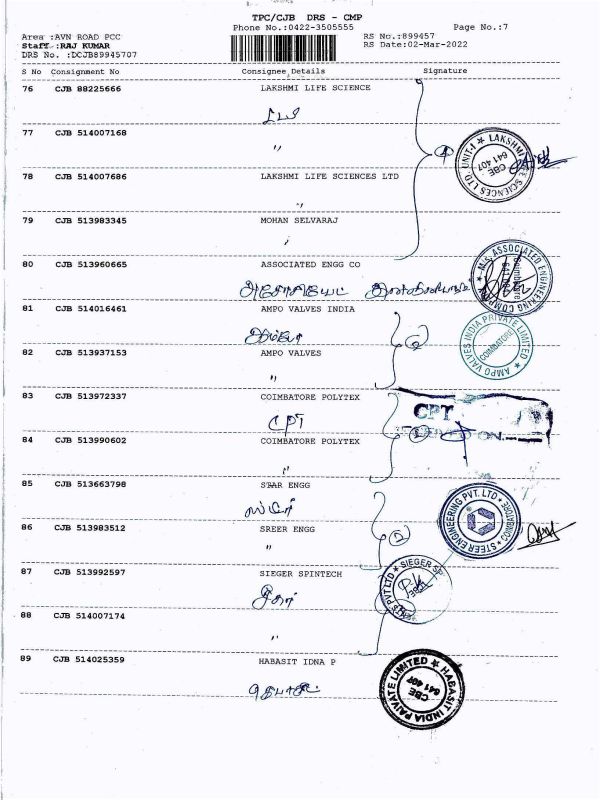 TPC/CJB DRS - CMP
Phone No.:0422-3505555 Page No.:7
Area :AVN ROAD PCC RS No.:899457
Staff :RAJ KUMAR RS Date:02-Mar-2022
DRS No. :DCJB89945707
S No Consignment No Consignee Details Signature
76 CJB 88225666 LAKSHMI LIFE SCIENCE
77 CJB 514007168
"
78 CJB 514007686 LAKSHMI LIFE SCIENCES LTD
"
LAKSHMI LIFE SCIENCES LTD. UNIT-I
CBE
641 407
79 CJB 513983345 MOHAN SELVARAJ
80 CJB 513960665 ASSOCIATED ENGG CO
M/S. ASSOCIATED ENGINEERING COMPANY
81 CJB 514016461 AMPO VALVES INDIA
82 CJB 513937153 AMPO VALVES
"
AMPO VALVES INDIA PRIVATE LIMITED
COIMBATORE
83 CJB 513972337 COIMBATORE POLYTEX
CPT
CPT
84 CJB 513990602 COIMBATORE POLYTEX
"
85 CJB 513663798 STAR ENGG
86 CJB 513983512 SREER ENGG
"
STEER ENGINEERING PVT. LTD
87 CJB 513992597 SIEGER SPINTECH
88 CJB 514007174
"
89 CJB 514025359 HABASIT IDNA P
HABASIT INDIA PRIVATE LIMITED
CBE
641 407